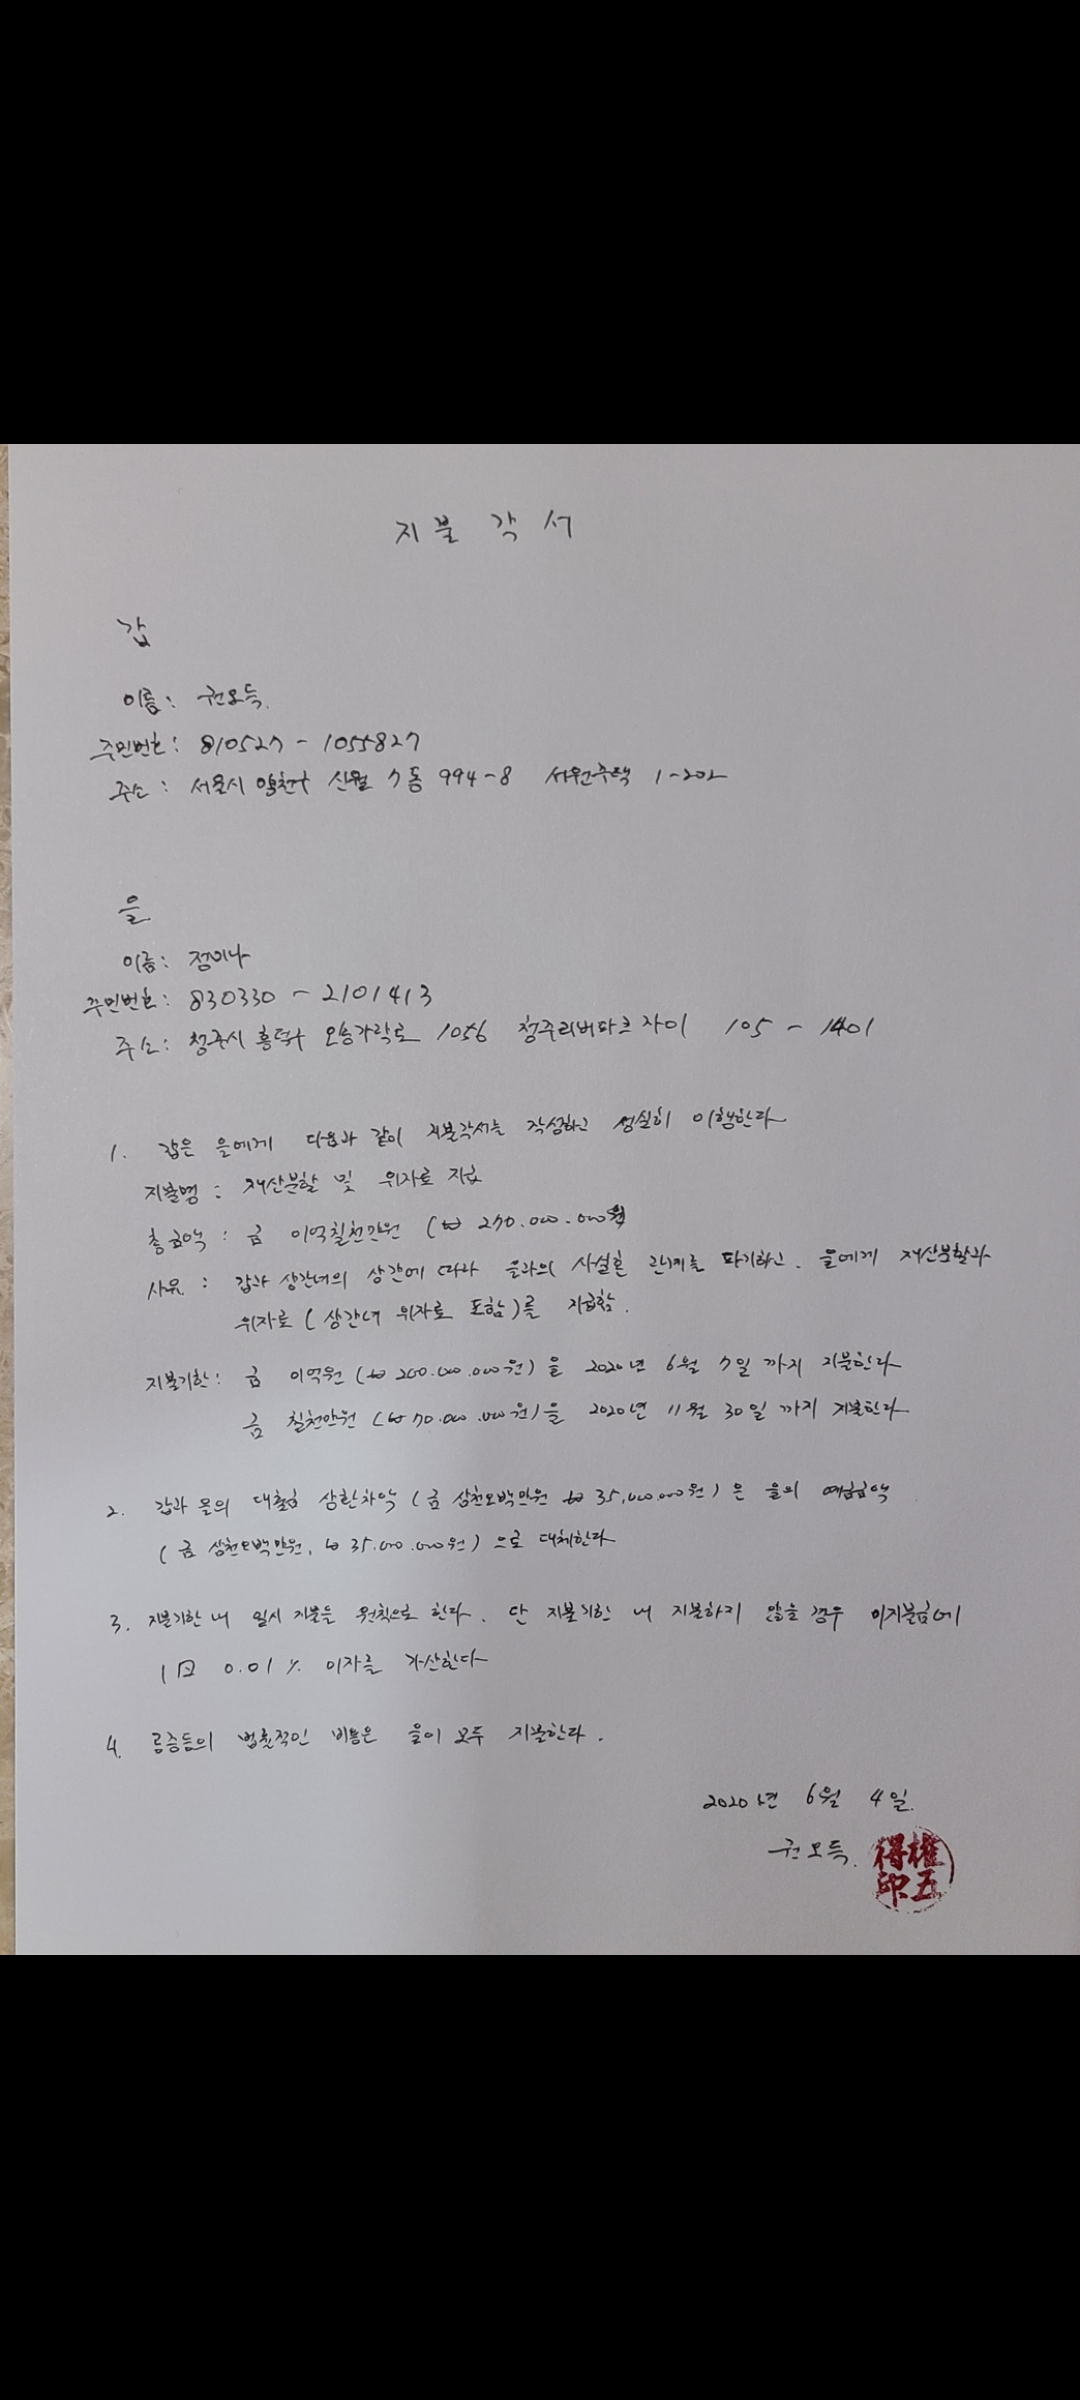 지불각서
갑
이름: 권오득.
주민번호: 810527-1055827
주소: 서울시 양천구 신월7동 994-8 서원주택 1-202
을
이름: 정미나
주민번호: 830330-2101413
주소: 청주시 흥덕구 오송가락로 1056 청주리버파크자이 105-1401
1. 갑은 을에게 다음과 같이 지불각서를 작성하고 성실히 이행한다
지불명: 재산분할 및 위자료 지급
총금액: 금 이억칠천만원 (₩270.000.000원
사유: 갑과 상간녀의 상간에 따라 을과의 사실혼 관계를 파기하고. 을에게 재산분할과
위자료(상간녀 위자료 포함)를 지급함.
지불기한: 금 이억원(₩200.000.000원)을 2020년 6월 7일 까지 지불한다
금 칠천만원(₩70.000.000원)을 2020년 11월 30일 까지 지불한다
2. 갑과 을의 대출금 상환차액(금 삼천오백만원 ₩35,000,000원)은 을의 예금금액
(금 삼천오백만원, ₩35.000.000원)으로 대체한다
3. 지불기한 내 일시 지불을 원칙으로 한다. 단 지불기한 내 지불하지 않을 경우 미지불금에
1日 0.01% 이자를 가산한다
4. 공증등의 법률적인 비용은 을이 모두 지불한다.
2020년 6월 4일.
권오득.
權五得印